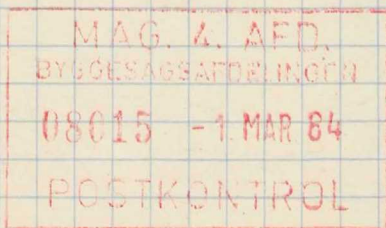 MAG. 4. AFD.
BYGGESAGSAFDELINGEN
08015 -1. MAR 84
POSTKONTROL